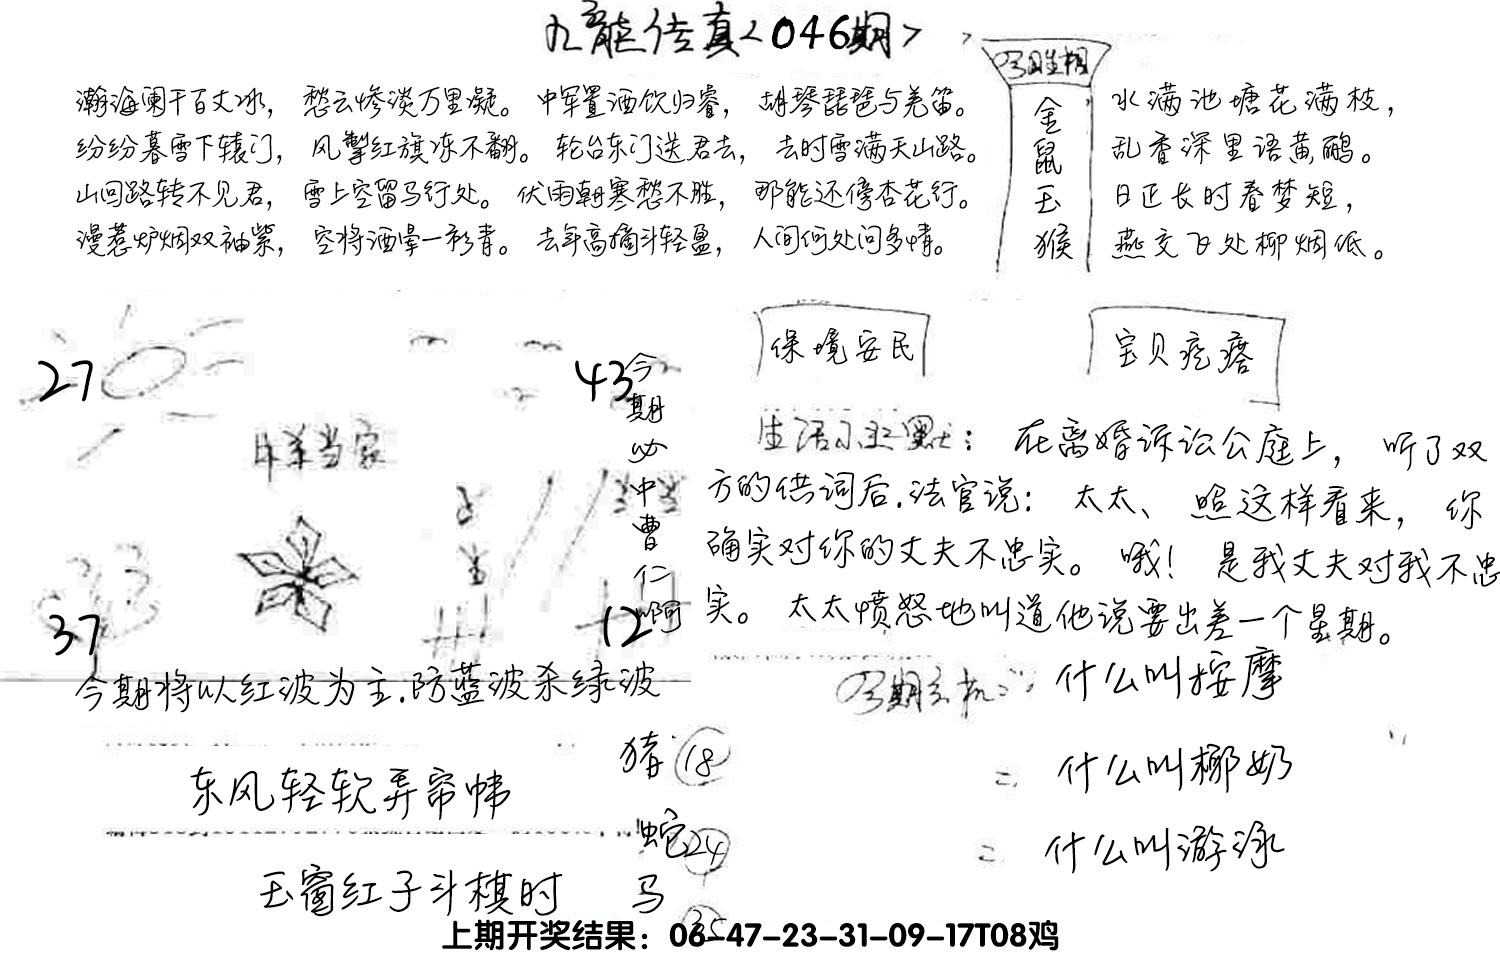 九龙传真<046期>
瀚海阑干百丈冰，愁云惨淡万里凝。中军置酒饮归客，胡琴琵琶与羌笛。
纷纷暮雪下辕门，风掣红旗冻不翻。轮台东门送君去，去时雪满天山路。
山回路转不见君，雪上空留马行处。伏雨朝寒愁不胜，那能还傍杏花行。
漫惹炉烟双袖紫，空将酒晕一衫青。去年高摘斗轻盈，人间何处问多情。
今期生相
金
鼠
玉
猴
水满池塘花满枝，
乱香深里语黄鹂。
日正长时春梦短，
燕交飞处柳烟低。
27
43
37
12
今期必中曹仁啊
今期将以红波为主.防蓝波杀绿波
保境安民
宝贝疙瘩
生活小幽默：在离婚诉讼公庭上，听了双
方的供词后.法官说：太太、照这样看来，你
确实对你的丈夫不忠实。哦！是我丈夫对我不忠
实。太太愤怒地叫道他说要出差一个星期。
今期玄机：什么叫按摩
=什么叫椰奶
=什么叫游泳
东风轻软弄帘帏
玉窗红子斗棋时
猪 18
蛇 24
马 35
上期开奖结果：06-47-23-31-09-17T08鸡